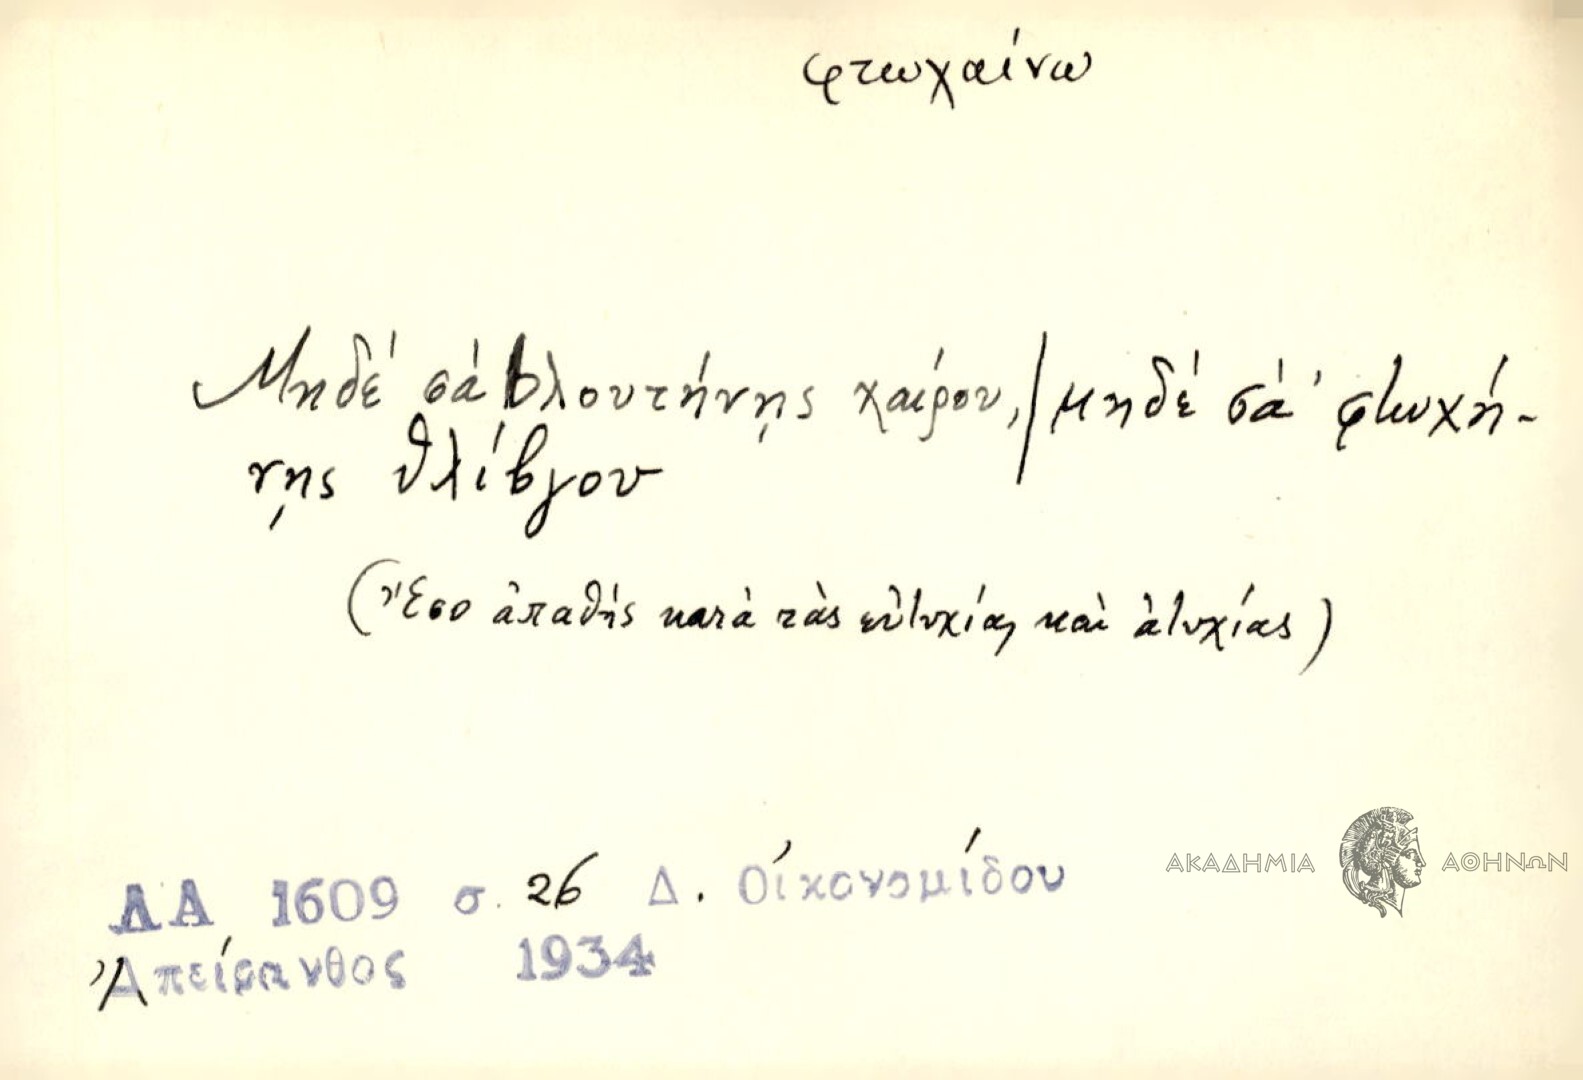 φτωχαίνω
Μηδέ σά βλουτήνῃς χαίρου, / μηδέ σά φτωχή-
νῃς θλίβγου
(Ἔσο ἀπαθής κατὰ τὰς εὐτυχίας καὶ ἀτυχίας)
ΑΚΑΔΗΜΙΑ ΑΘΗΝΩΝ
ΛΑ 1609 σ. 26 Δ. Οἰκονομίδου
Ἀπείρανθος 1934